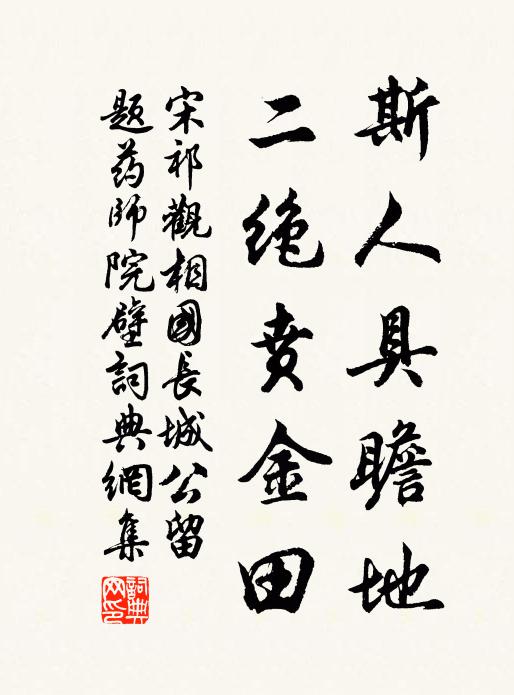 斯人具瞻地
二绝贲金田
宋祁觀相國長城公留
题药師院壁詞典網集
詞典网印